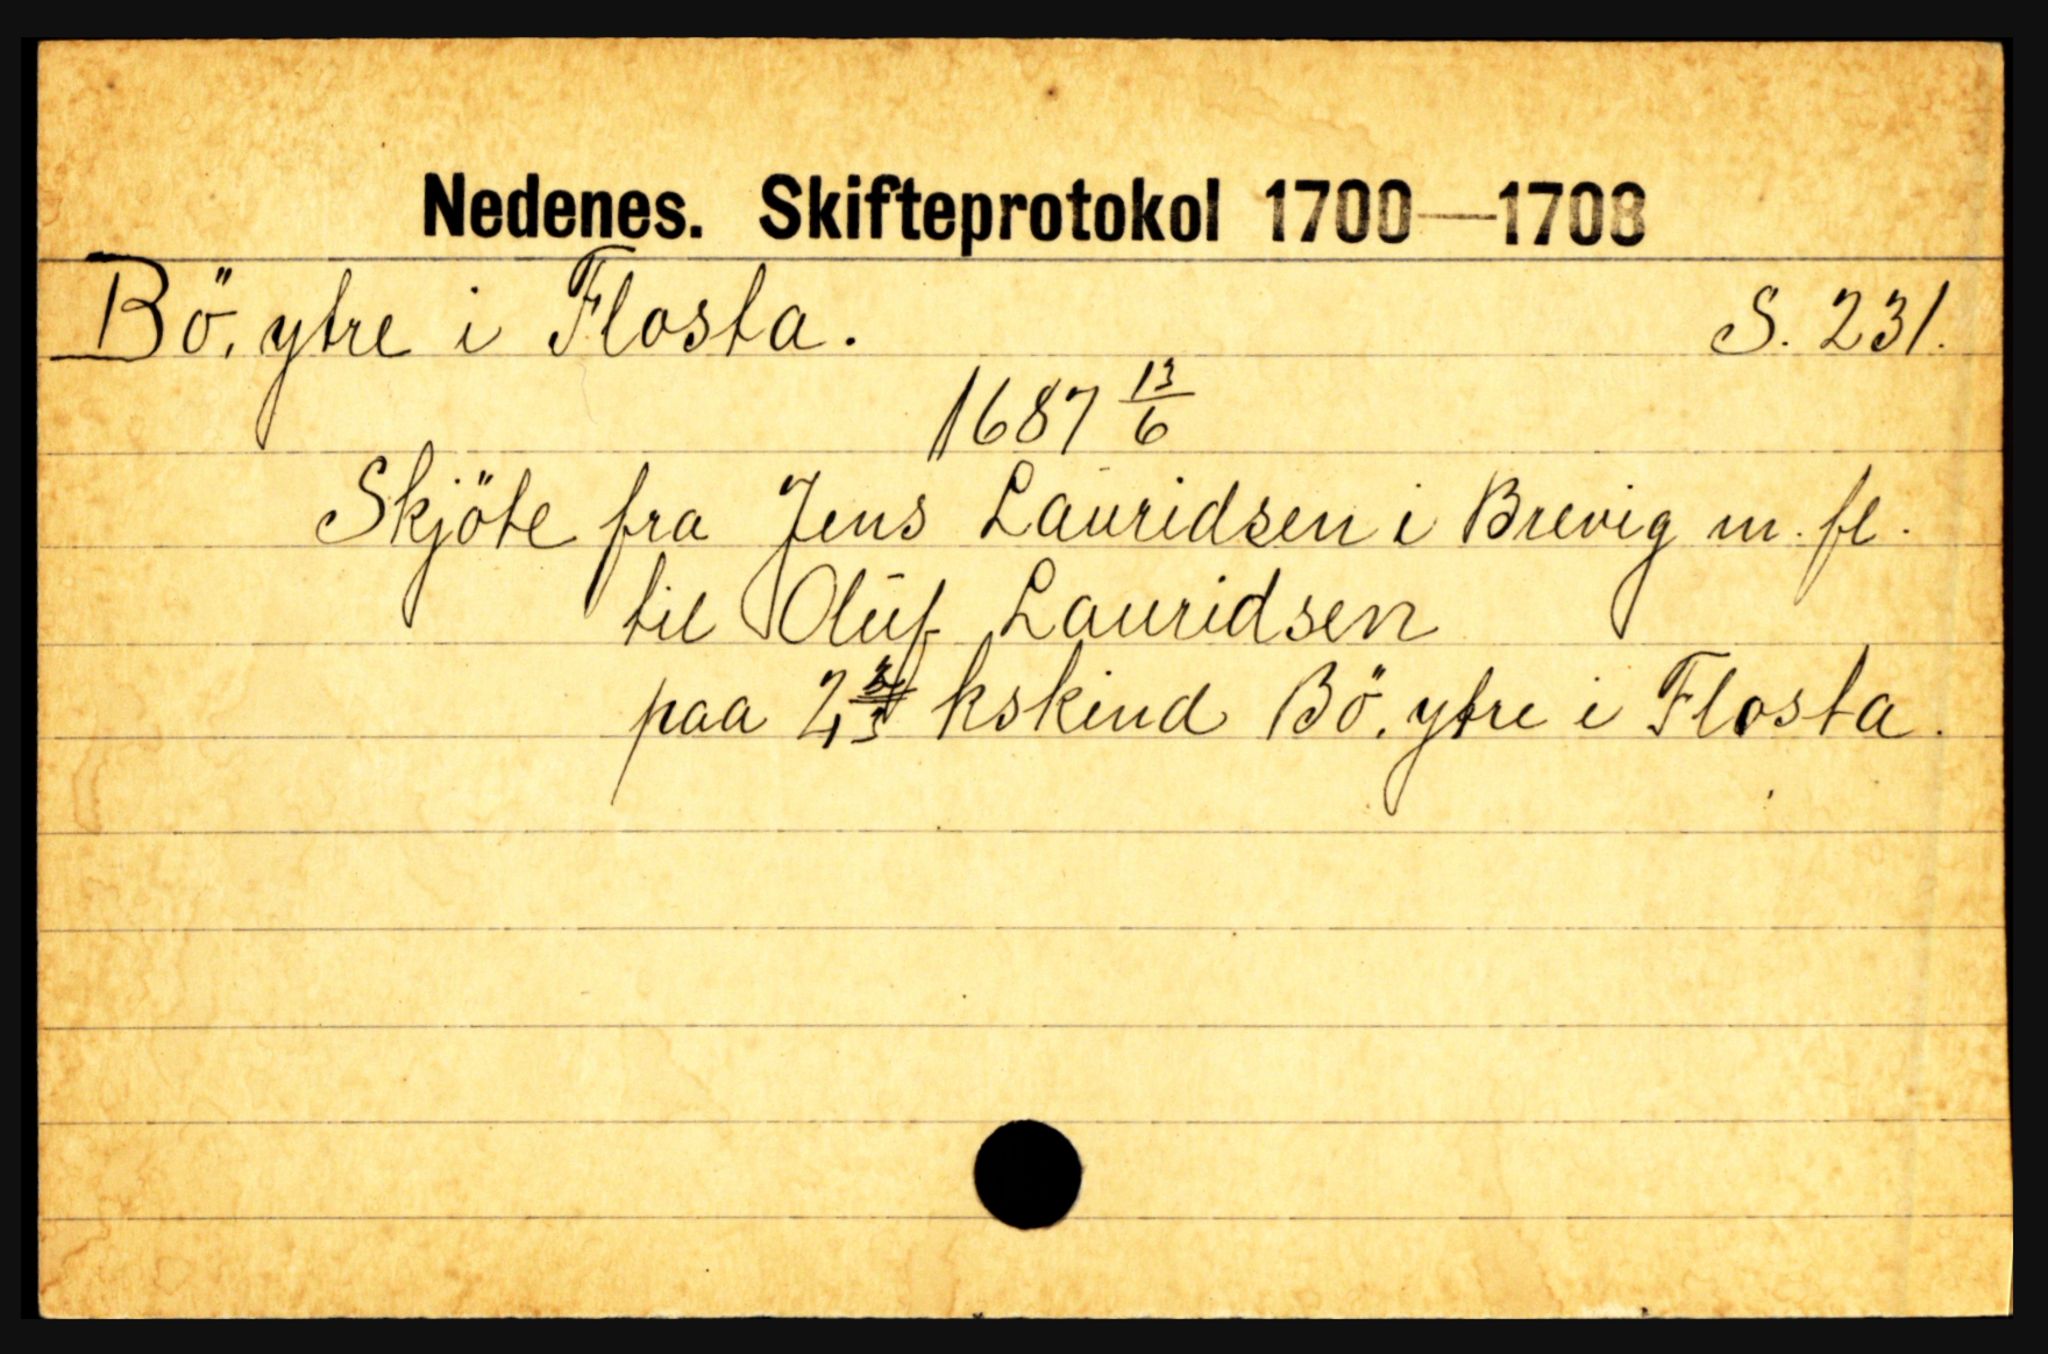 Nedenes. Skifteprotokol 1700—1708
Bö, ytre i Flosta. S. 231.
1687 13/6
Skjöte fra Jens Lauridsen i Brevig m. fl.
til Oluf Lauridsen
paa 2 kskind Bö, ytre i Flosta.